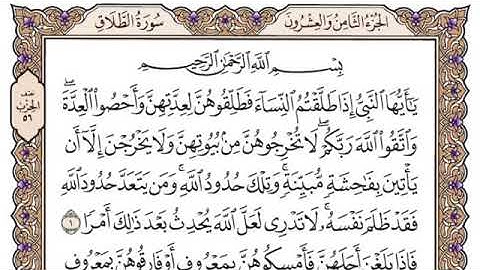 سُورَةُ الطَّلَاقِ الجُزْءُ الثَّامِنُ وَالعِشْرُونَ
بِسْمِ اللَّهِ الرَّحْمَٰنِ الرَّحِيمِ
يَٰٓأَيُّهَا ٱلنَّبِيُّ إِذَا طَلَّقْتُمُ ٱلنِّسَآءَ فَطَلِّقُوهُنَّ لِعِدَّتِهِنَّ وَأَحْصُوا۟ ٱلْعِدَّةَ ۖ
وَٱتَّقُوا۟ ٱللَّهَ رَبَّكُمْ ۖ لَا تُخْرِجُوهُنَّ مِنۢ بُيُوتِهِنَّ وَلَا يَخْرُجْنَ إِلَّآ أَن
يَأْتِينَ بِفَٰحِشَةٍ مُّبَيِّنَةٍ ۚ وَتِلْكَ حُدُودُ ٱللَّهِ ۚ وَمَن يَتَعَدَّ حُدُودَ ٱللَّهِ
فَقَدْ ظَلَمَ نَفْسَهُۥ ۚ لَا تَدْرِى لَعَلَّ ٱللَّهَ يُحْدِثُ بَعْدَ ذَٰلِكَ أَمْرًا ١
فَإِذَا بَلَغْنَ أَجَلَهُنَّ فَأَمْسِكُوهُنَّ بِمَعْرُوفٍ أَوْ فَارِقُوهُنَّ بِمَعْرُوفٍ
نصف
الحزب
٥٦